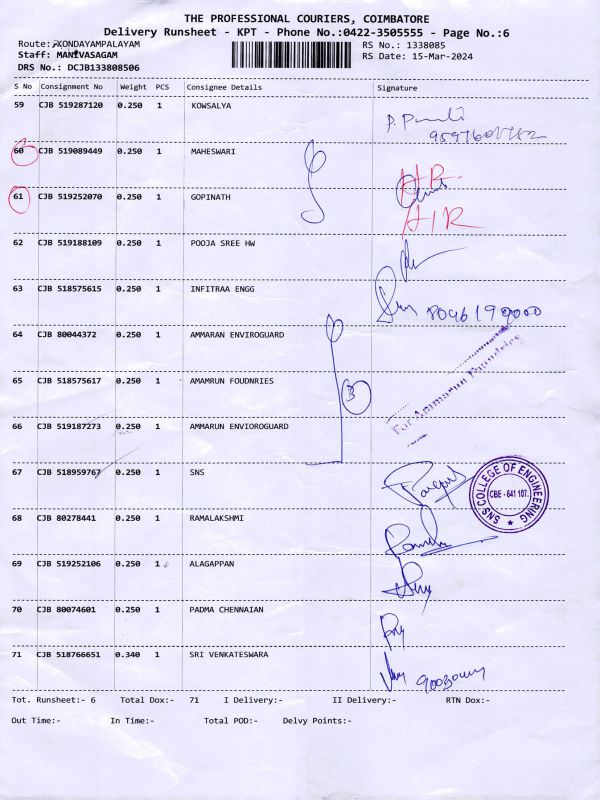 THE PROFESSIONAL COURIERS, COIMBATORE
Delivery Runsheet - KPT - Phone No.:0422-3505555 - Page No.:6
Route: KONDAYAMPALAYAM RS No.: 1338085
Staff: MANIVASAGAM RS Date: 15-Mar-2024
DRS No.: DCJB133808506
S No Consignment No Weight PCS Consignee Details Signature
59 CJB 519287120 0.250 1 KOWSALYA
60 CJB 519089449 0.250 1 MAHESWARI
61 CJB 519252070 0.250 1 GOPINATH
62 CJB 519188109 0.250 1 POOJA SREE HW
63 CJB 518575615 0.250 1 INFITRAA ENGG
64 CJB 80044372 0.250 1 AMMARAN ENVIROGUARD
65 CJB 518575617 0.250 1 AMAMRUN FOUDNRIES
For Ammarun Foundries
66 CJB 519187273 0.250 1 AMMARUN ENVIOROGUARD
67 CJB 518959767 0.250 1 SNS
SNS COLLEGE OF ENGINEERING
CBE - 641 107.
68 CJB 80278441 0.250 1 RAMALAKSHMI
69 CJB 519252106 0.250 1 ALAGAPPAN
70 CJB 80074601 0.250 1 PADMA CHENNAIAN
71 CJB 518766651 0.340 1 SRI VENKATESWARA
Tot. Runsheet:- 6 Total Dox:- 71 I Delivery:- II Delivery:- RTN Dox:-
Out Time:- In Time:- Total POD:- Delvy Points:-